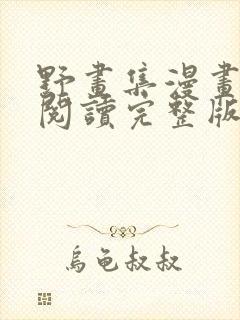 野畫集漫畫
閱讀完整版
烏龜叔叔